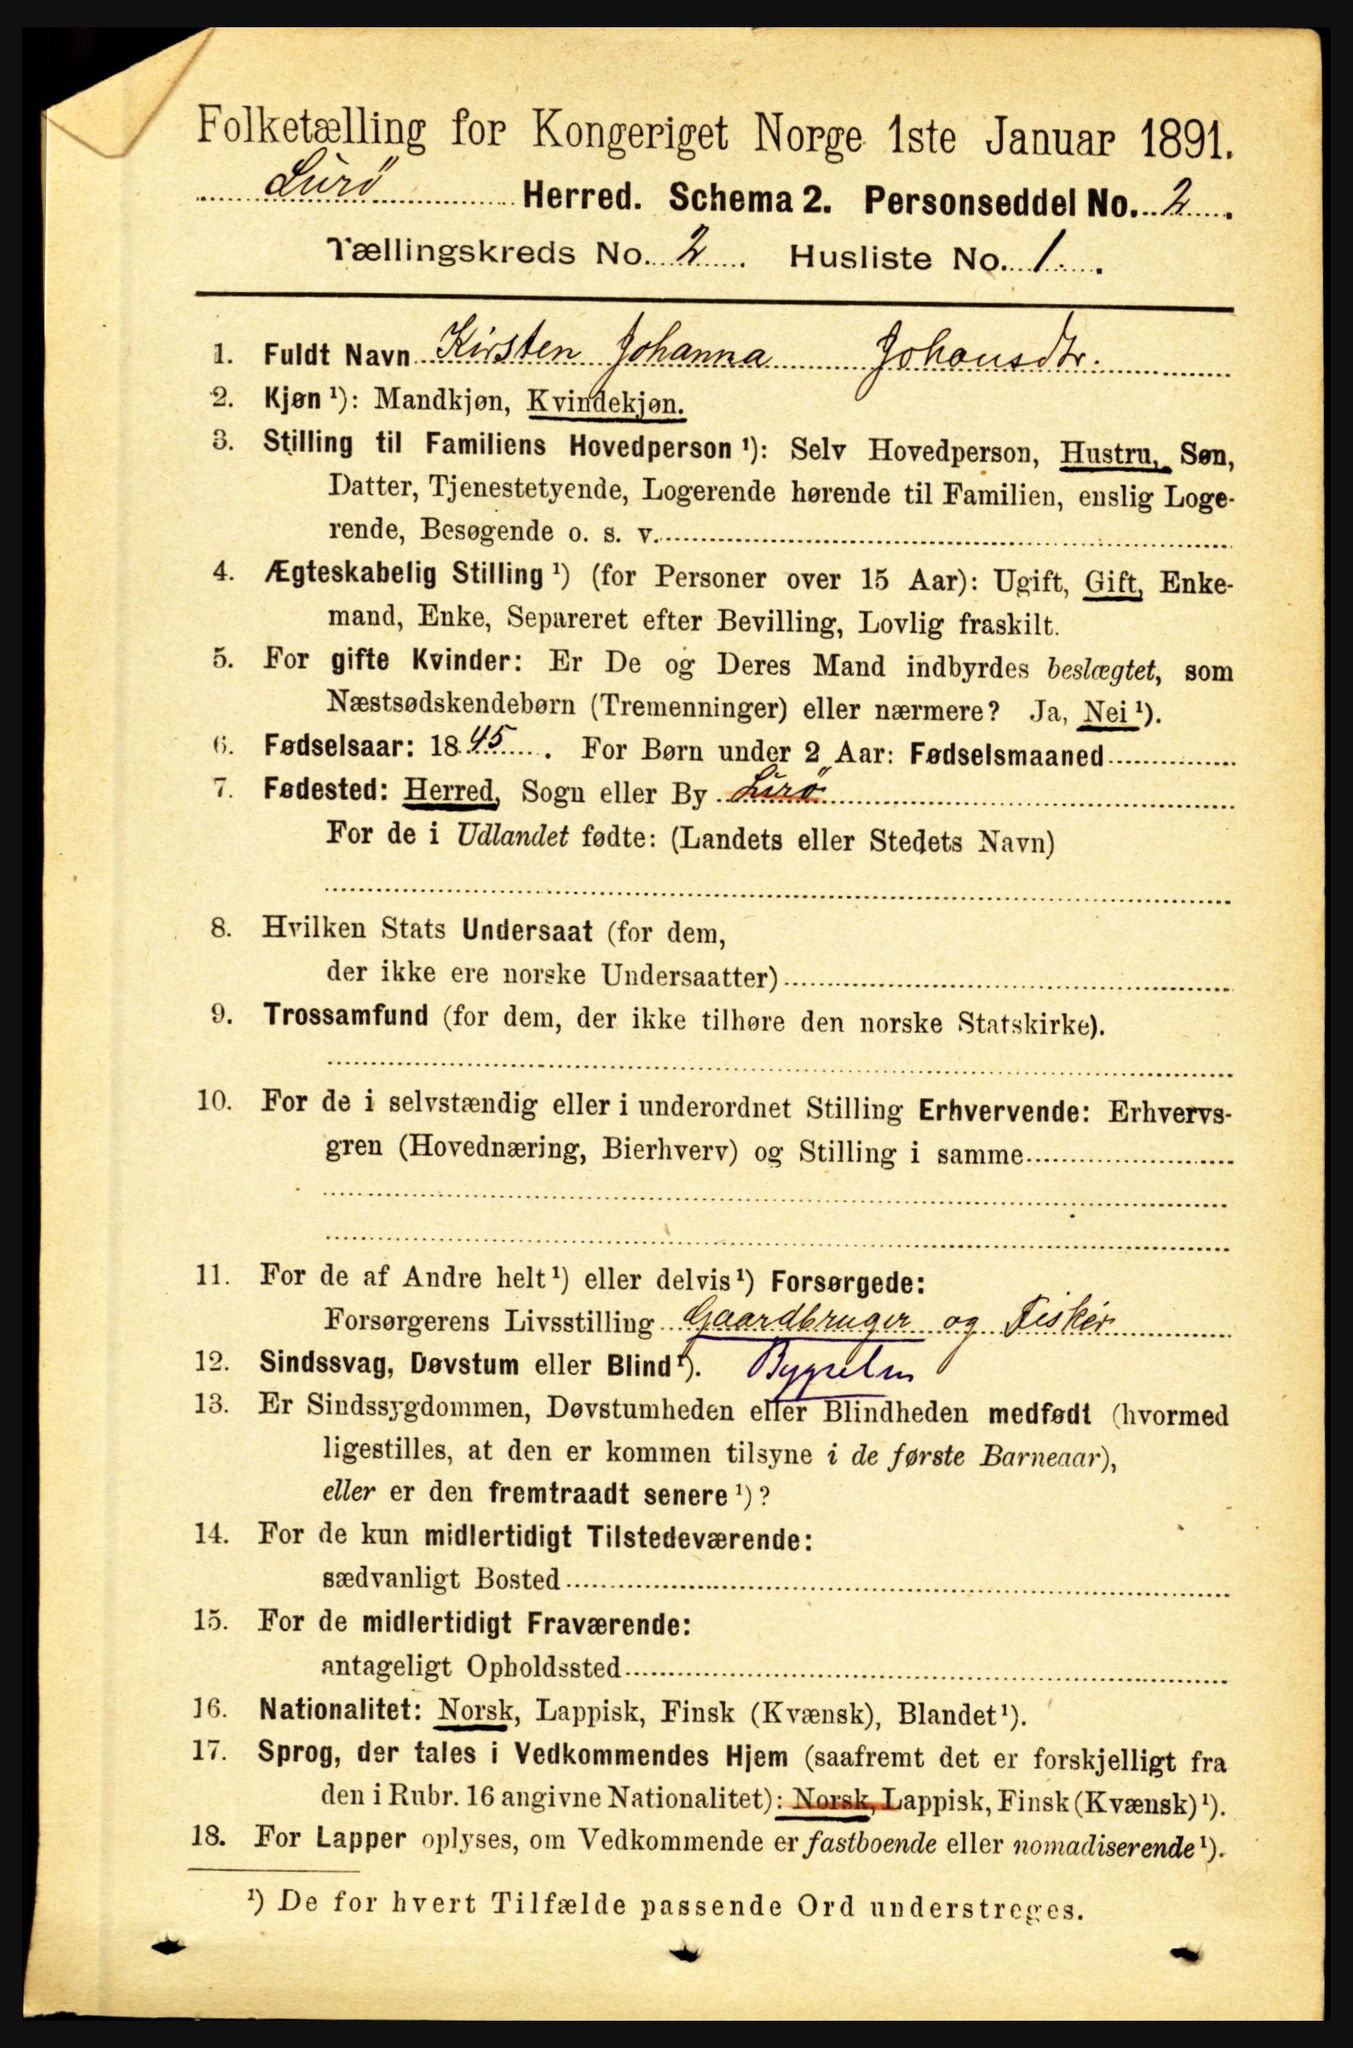 Folketælling for Kongeriget Norge 1ste Januar 1891.
Lurö Herred. Schema 2. Personseddel No. 2.
Tællingskreds No. 2. Husliste No. 1.
1. Fuldt Navn Kirsten Johanna Johansdtr.
2. Kjøn ¹): Mandkjøn, Kvindekjøn.
3. Stilling til Familiens Hovedperson ¹): Selv Hovedperson, Hustru, Søn,
Datter, Tjenestetyende, Logerende hørende til Familien, enslig Loge-
rende, Besøgende o. s. v.
4. Ægteskabelig Stilling ¹) (for Personer over 15 Aar): Ugift, Gift, Enke-
mand, Enke, Separeret efter Bevilling, Lovlig fraskilt.
5. For gifte Kvinder: Er De og Deres Mand indbyrdes beslægtet, som
Næstsødskendebørn (Tremenninger) eller nærmere? Ja, Nei ¹).
6. Fødselsaar: 1845. For Børn under 2 Aar: Fødselsmaaned
7. Fødested: Herred, Sogn eller By Lurö
For de i Udlandet fødte: (Landets eller Stedets Navn)
8. Hvilken Stats Undersaat (for dem,
der ikke ere norske Undersaatter)
9. Trossamfund (for dem, der ikke tilhøre den norske Statskirke).
10. For de i selvstændig eller i underordnet Stilling Erhvervende: Erhvervs-
gren (Hovednæring, Bierhverv) og Stilling i samme
11. For de af Andre helt ¹) eller delvis ¹) Forsørgede:
Forsørgerens Livsstilling Gaardbruger og Fisker
12. Sindssvag, Døvstum eller Blind ¹).
13. Er Sindssygdommen, Døvstumheden eller Blindheden medfødt (hvormed
ligestilles, at den er kommen tilsyne i de første Barneaar),
eller er den fremtraadt senere ¹)?
14. For de kun midlertidigt Tilstedeværende:
sædvanligt Bosted
15. For de midlertidigt Fraværende:
antageligt Opholdssted
16. Nationalitet: Norsk, Lappisk, Finsk (Kvænsk), Blandet ¹).
17. Sprog, der tales i Vedkommendes Hjem (saafremt det er forskjelligt fra
den i Rubr. 16 angivne Nationalitet): Norsk, Lappisk, Finsk (Kvænsk) ¹).
18. For Lapper oplyses, om Vedkommende er fastboende eller nomadiserende ¹).
¹) De for hvert Tilfælde passende Ord understreges.